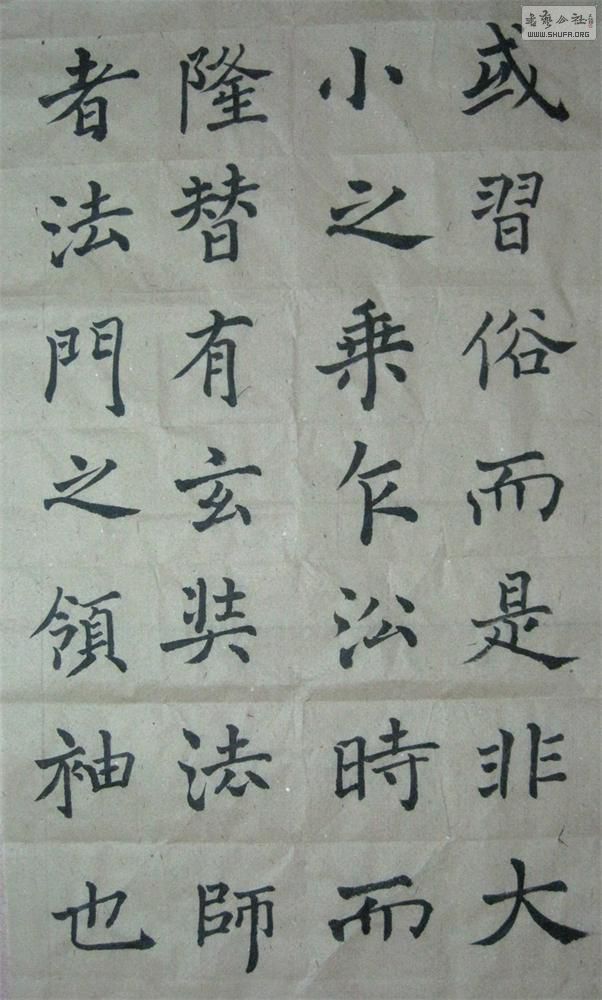 或習俗而是非大
小之乗乍㳂時而
隆替有玄奘法師
者法門之領袖也
WWW.SHUFA.ORG